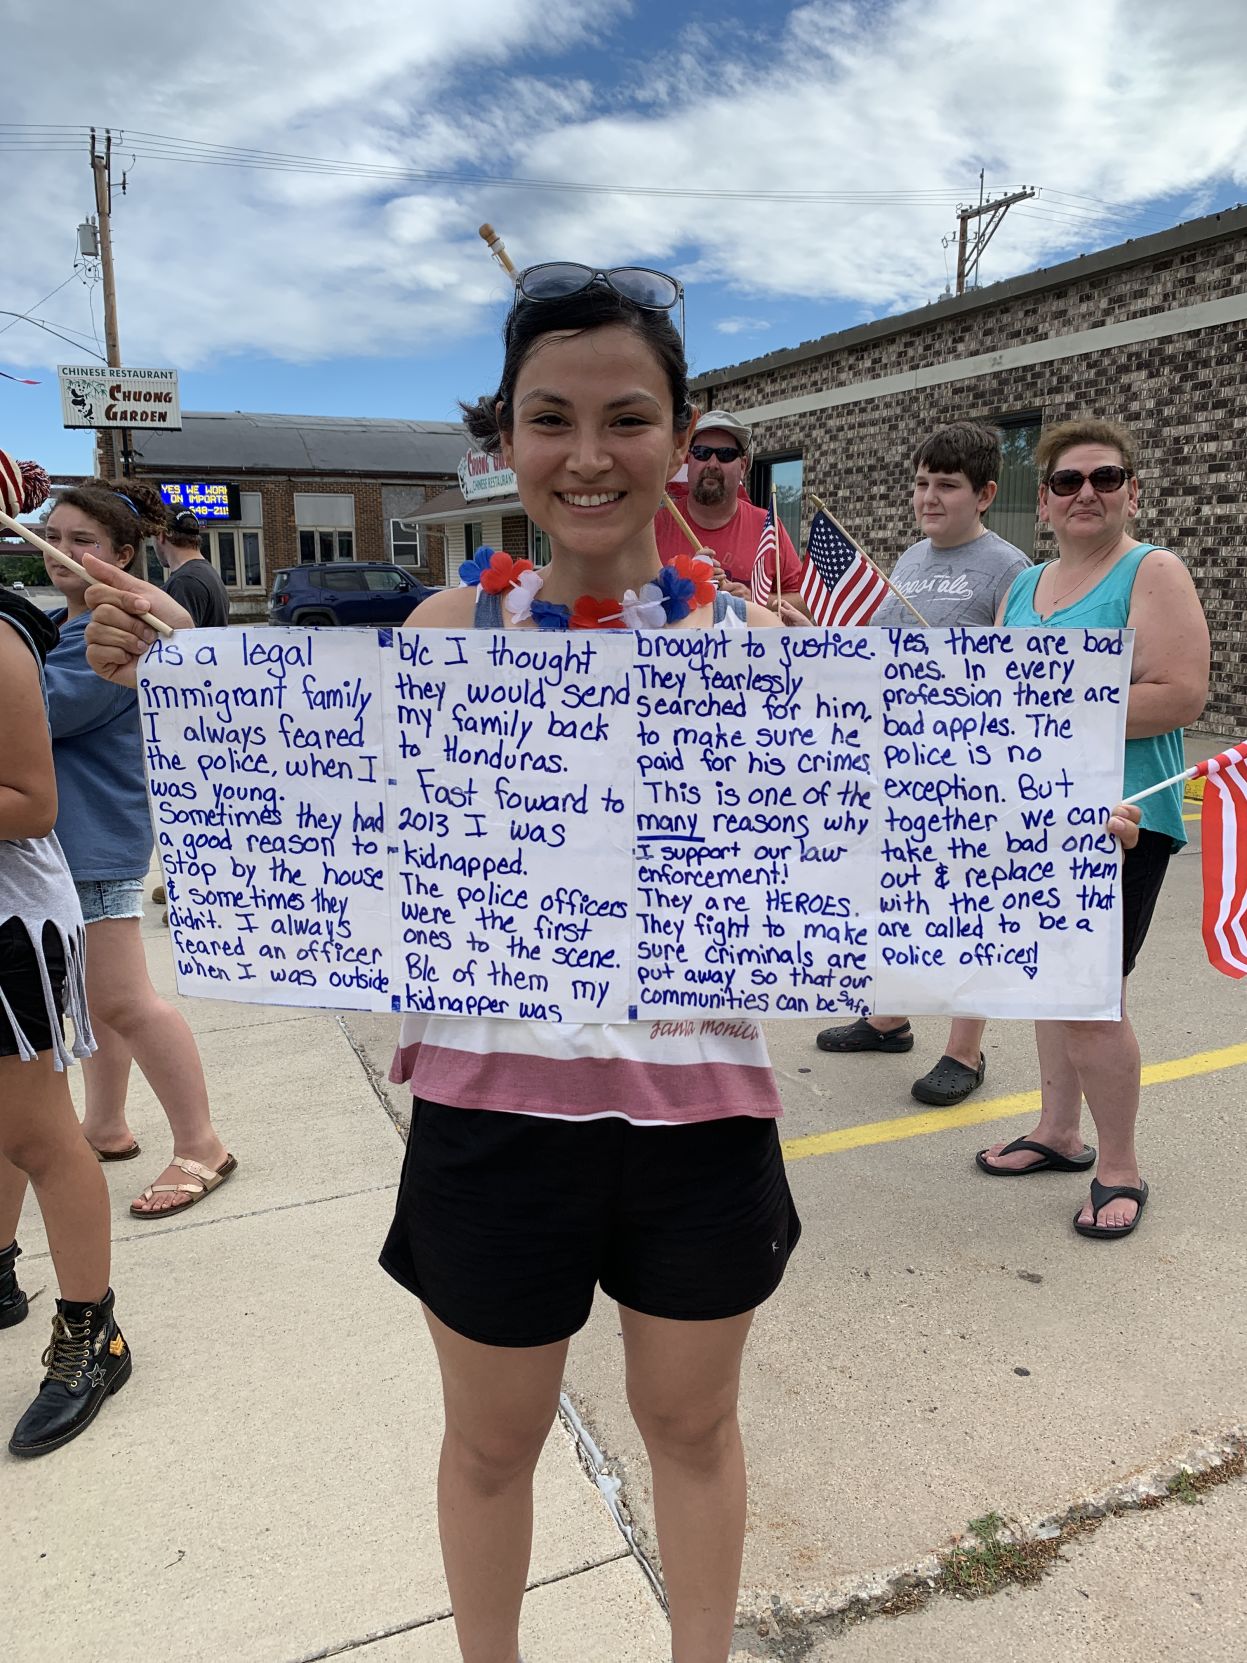 CHINESE RESTAURANT
CHUONG
GARDEN
YES WE WORK
ON IMPORTS
648-211
CHINESE RESTAURANT
As a legal
immigrant family
I always feared
the police, when I
was young.
Sometimes they had
a good reason to
stop by the house
& sometimes they
didn't. I always
feared an officer
when I was outside
b/c I thought
they would send
my family back
to Honduras.
Fast foward to
2013 I was
kidnapped.
The police officers
were the first
ones to the scene.
B/c of them my
kidnapper was
brought to justice.
They fearlessly
searched for him,
to make sure he
paid for his crimes.
This is one of the
many reasons why
I support our law
enforcement!
They are HEROES.
They fight to make
sure criminals are
put away so that our
communities can be safe.
Yes, there are bad
ones. In every
profession there are
bad apples. The
police is no
exception. But
together we can
take the bad ones
out & replace them
with the ones that
are called to be a
police officer!
Santa Monica